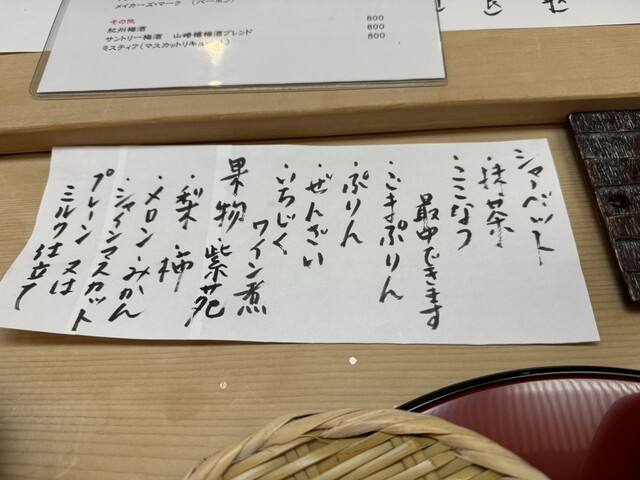 メイカーズ・マーク (バーボン)
その他
紀州梅酒 800
サントリー梅酒 山崎樽梅酒ブレンド 800
ミスティア(マスカットリキュール) 800
シャーベット
・抹茶
・ここなつ
最中できます
・ごまぷりん
・ぷりん
・ぜんざい
・いちじく
ワイン煮
果物 紫苑
・梨・柿
・メロン・みかん
・シャインマスカット
プレーン又は
ミルク仕立て